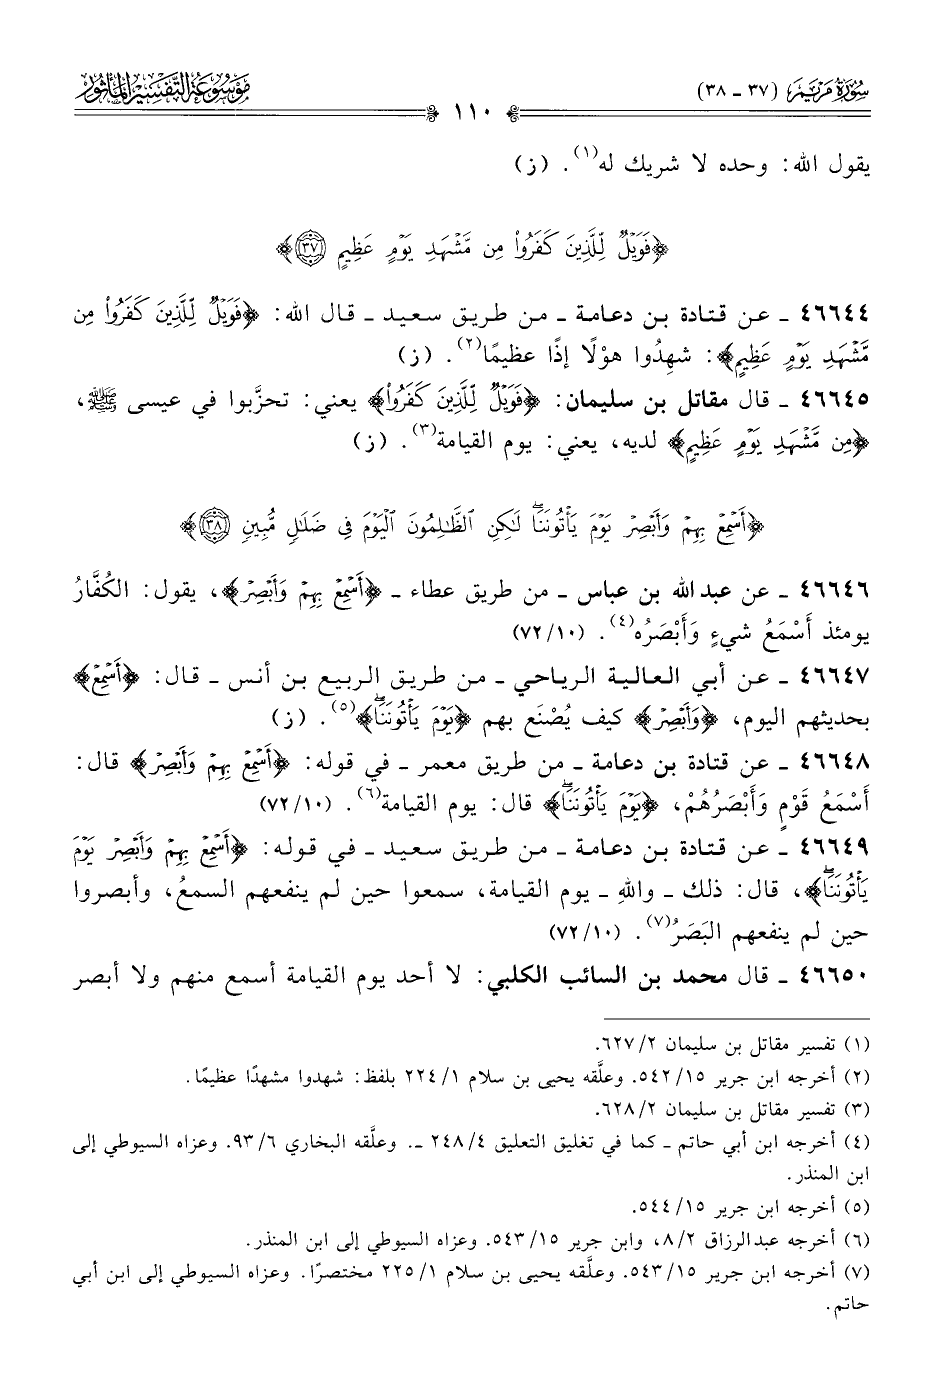 سُورَةُ مَرْيَمَ (٣٧ ـ ٣٨)
١١٠
مَوْسُوعَة التَّفْسِيْرِ المَأْثُور
يقول الله: وحده لا شريك له(١). (ز)
﴿فَوَيْلٌ لِّلَّذِينَ كَفَرُوا۟ مِن مَّشْهَدِ يَوْمٍ عَظِيمٍ ٣٧﴾
٤٦٦٤٤ ـ عن قتادة بن دعامة ـ من طريق سعيد ـ قال الله: ﴿فَوَيْلٌ لِّلَّذِينَ كَفَرُوا۟ مِن
مَّشْهَدِ يَوْمٍ عَظِيمٍ﴾: شهِدُوا هوْلًا إذًا عظيمًا(٢). (ز)
٤٦٦٤٥ ـ قال مقاتل بن سليمان: ﴿فَوَيْلٌ لِّلَّذِينَ كَفَرُوا۟﴾ يعني: تحزَّبوا في عيسى ﷺ،
﴿مِن مَّشْهَدِ يَوْمٍ عَظِيمٍ﴾ لديه، يعني: يوم القيامة(٣). (ز)
﴿أَسْمِعْ بِهِمْ وَأَبْصِرْ يَوْمَ يَأْتُونَنَا ۖ لَٰكِنِ الظَّٰلِمُونَ الْيَوْمَ فِى ضَلَٰلٍ مُّبِينٍ ٣٨﴾
٤٦٦٤٦ ـ عن عبد الله بن عباس ـ من طريق عطاء ـ ﴿أَسْمِعْ بِهِمْ وَأَبْصِرْ﴾، يقول: الكُفَّارُ
يومئذ أَسْمَعُ شيءٍ وَأَبْصَرُه(٤). (٧٢/١٠)
٤٦٦٤٧ ـ عن أبي العالية الرياحي ـ من طريق الربيع بن أنس ـ قال: ﴿أَسْمِعْ﴾
بحديثهم اليوم، ﴿وَأَبْصِرْ﴾ كيف يُصْنَع بهم ﴿يَوْمَ يَأْتُونَنَا ۖ﴾(٥). (ز)
٤٦٦٤٨ ـ عن قتادة بن دعامة ـ من طريق معمر ـ في قوله: ﴿أَسْمِعْ بِهِمْ وَأَبْصِرْ﴾ قال:
أَسْمَعُ قَوْمٍ وَأَبْصَرُهُمْ، ﴿يَوْمَ يَأْتُونَنَا ۖ﴾ قال: يوم القيامة(٦). (٧٢/١٠)
٤٦٦٤٩ ـ عن قتادة بن دعامة ـ من طريق سعيد ـ في قوله: ﴿أَسْمِعْ بِهِمْ وَأَبْصِرْ يَوْمَ
يَأْتُونَنَا ۖ﴾، قال: ذلك ـ واللهِ ـ يوم القيامة، سمعوا حين لم ينفعهم السمعُ، وأبصروا
حين لم ينفعهم البَصَرُ(٧). (٧٢/١٠)
٤٦٦٥٠ ـ قال محمد بن السائب الكلبي: لا أحد يوم القيامة أسمع منهم ولا أبصر
(١) تفسير مقاتل بن سليمان ٦٢٧/٢.
(٢) أخرجه ابن جرير ٥٤٢/١٥. وعلَّقه يحيى بن سلام ٢٢٤/١ بلفظ: شهدوا مشهدًا عظيمًا.
(٣) تفسير مقاتل بن سليمان ٦٢٨/٢.
(٤) أخرجه ابن أبي حاتم ـ كما في تغليق التعليق ٢٤٨/٤ ـ. وعلَّقه البخاري ٩٣/٦. وعزاه السيوطي إلى
ابن المنذر.
(٥) أخرجه ابن جرير ٥٤٤/١٥.
(٦) أخرجه عبدالرزاق ٨/٢، وابن جرير ٥٤٣/١٥. وعزاه السيوطي إلى ابن المنذر.
(٧) أخرجه ابن جرير ٥٤٣/١٥. وعلَّقه يحيى بن سلام ٢٢٥/١ مختصرًا. وعزاه السيوطي إلى ابن أبي
حاتم.